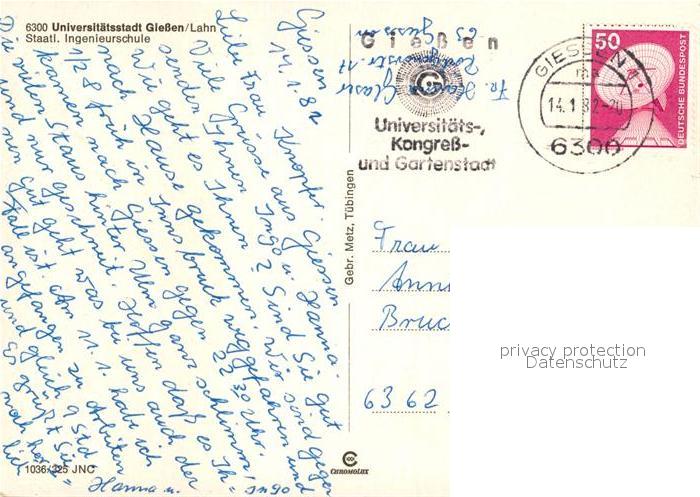 6300 Universitätsstadt Gießen/Lahn
Staatl. Ingenieurschule
Giessen
14.1.82
Liebe Frau Knopf.
Viele Grüsse aus Giessen
senden Ihnen Ingo u. Hanna.
Wie geht es Ihnen? Sind Sie gut
nach Hause gekommen. Wir sind gegen
1/2 8 früh in Innsbruck weggefahren und
kamen nach Giessen gegen 22 30 Uhr.
Die vielen Staus hinter Ulm ganz schlimm,
und nur geschneit. Hoffen daß es Ih=
nen gut geht was bei uns auch der
Fall ist. Am 11.1. habe ich
angefangen zu Arbeiten
und gleich 9 Std.
Es grüßt Sie
noch herz=
lich
Hanna u. Ingo
1036/325 JNC
Gebr. Metz, Tübingen
CHROMOLUX
Fa. Glaser
63 Giessen
Gießen
G
Universitäts-,
Kongreß-
und Gartenstadt
GIESSEN 1
ma
14.1.82-20
6300
50
DEUTSCHE BUNDESPOST
Frau
Ann
Bruc
6362
privacy protection
Datenschutz